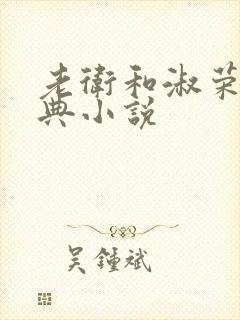 老衛和淑荣
典小説
吴鍾斌